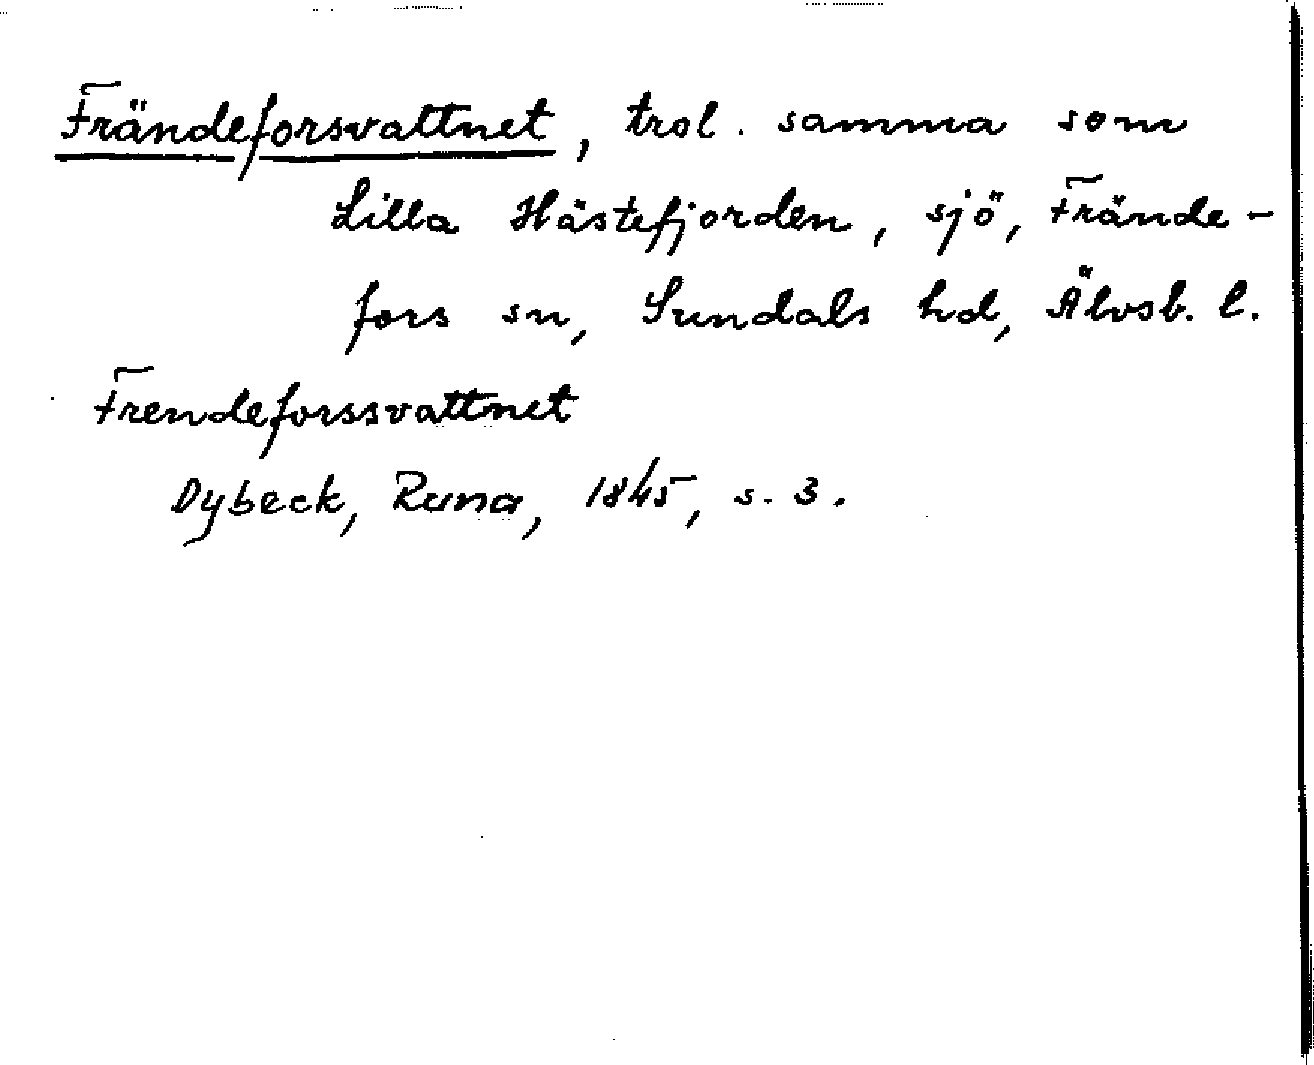 Frändeforsvattnet, trol. samma som
Lilla Hästefjorden, sjö, Frände-
fors sn, Sundals hd, Älvsb. l.
Frendeforssvattnet
Dybeck, Runa, 1845, s. 3.